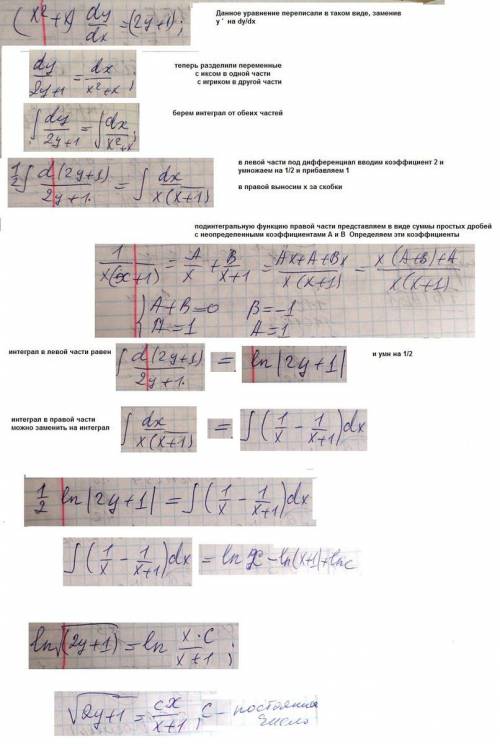 (x²+x) dy/dx = (2y+1);
Данное уравнение переписали в таком виде, заменив
y ' на dy/dx
dy/2y+1 = dx/x²+x;
теперь разделяли переменные
с иксом в одной части
с игриком в другой части
∫ dy/2y+1 = ∫ dx/x²+x;
берем интеграл от обеих частей
1/2 ∫ d(2y+1)/2y+1. = ∫ dx/x(x+1)
в левой части под дифференциал вводим коэффициент 2 и
умножаем на 1/2 и прибавляем 1
в правой выносим х за скобки
подинтегральную функцию правой части представляем в виде суммы простых дробей
с неопределенными коэффициентами А и В Определяем эти коэффициенты
1/x(x+1) = A/x + B/x+1 = Ax+A+Bx/x(x+1) = x(A+B)+A/x(x+1)
{ A+B=0 B=-1
A=1 A=1
интеграл в левой части равен ∫ d(2y+1)/2y+1. = ln|2y+1| и умн на 1/2
интеграл в правой части
можно заменить на интеграл ∫ dx/x(x+1) = ∫ (1/x - 1/x+1)dx
1/2 ln|2y+1| = ∫ (1/x - 1/x+1)dx
∫ (1/x - 1/x+1)dx = ln x - ln(x+1)+lnc
ln√(2y+1) = ln x·c/x+1;
√2y+1 = cx/x+1, c - постоянная
число